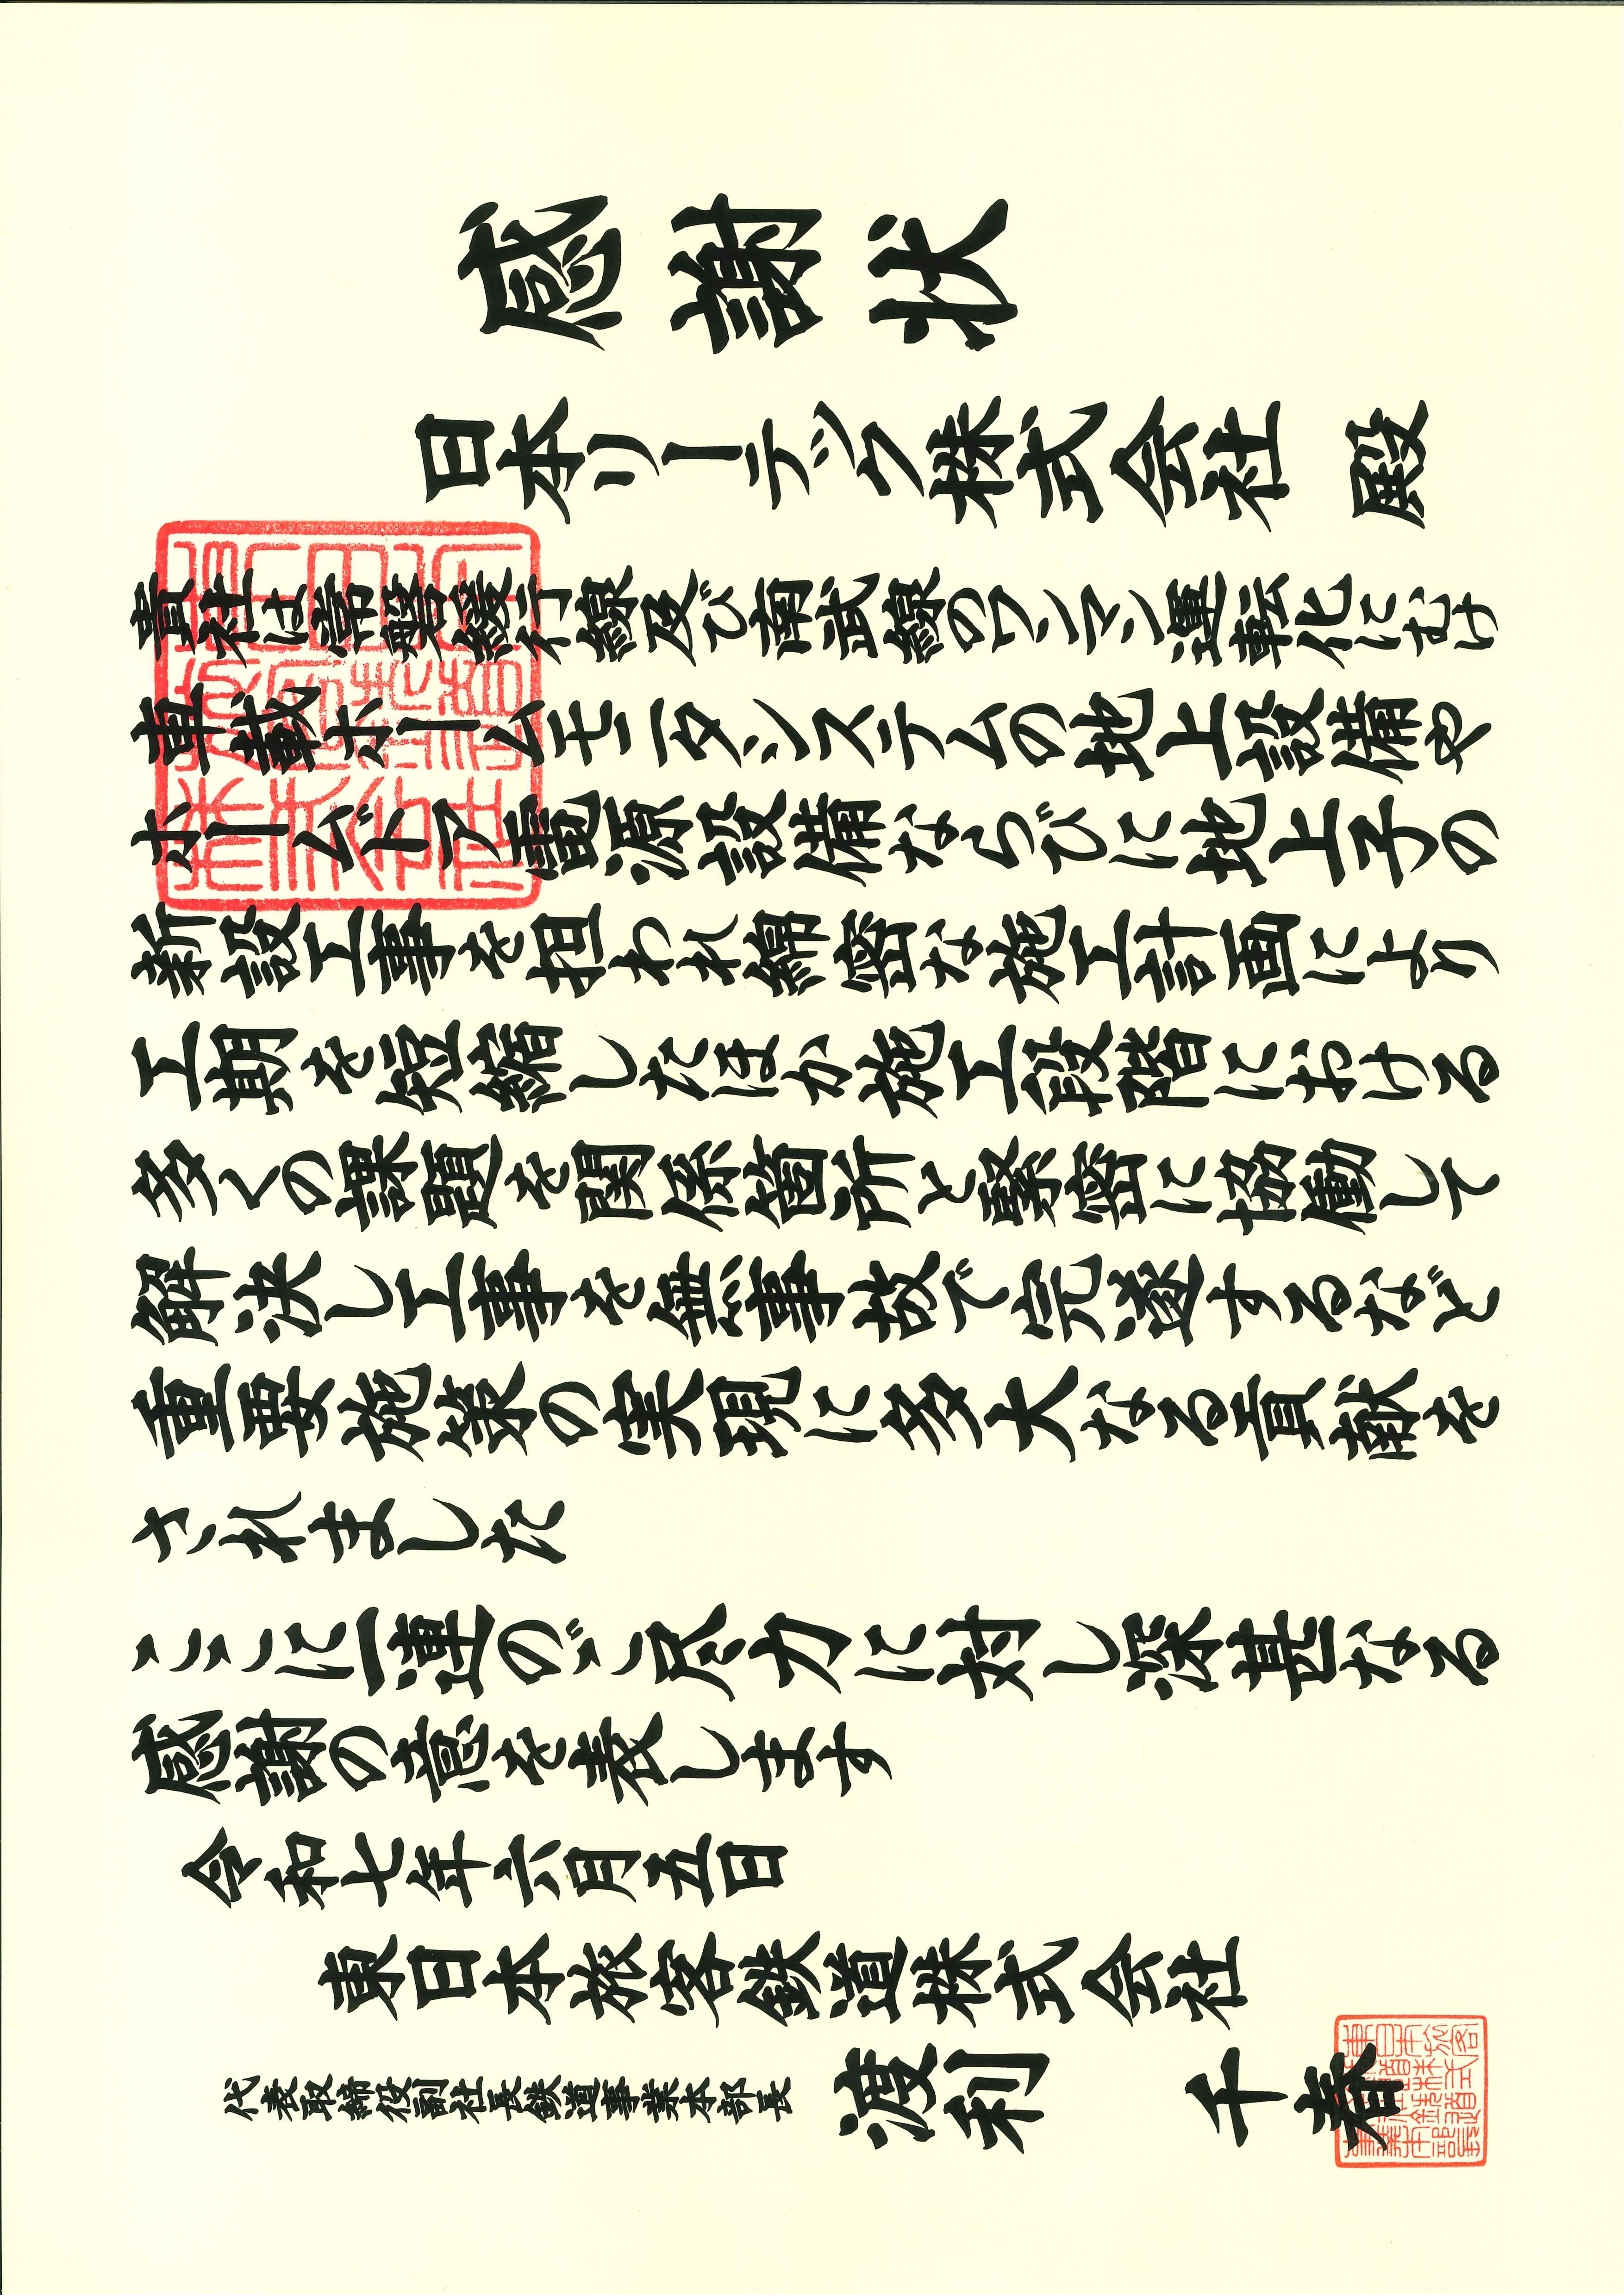 感謝状
日本リーテック株式会社 殿
貴社は常磐緩行線及び南武線のワンマン運転化にむけ
車載ホームモニタシステムの地上設備や
ホームドア電源設備ならびに地上子の
新設工事を担われ綿密な施工計画により
工期を短縮したほか施工段階における
多くの課題を関係箇所と緊密に協働して
解決し工事を無事故で完遂するなど
重要施策の実現に多大なる貢献を
されました
ここに一連のご尽力に対し深甚なる
感謝の意を表します
令和七年六月五日
東日本旅客鉄道株式会社
代表取締役副社長鉄道事業本部長 渡利 千春